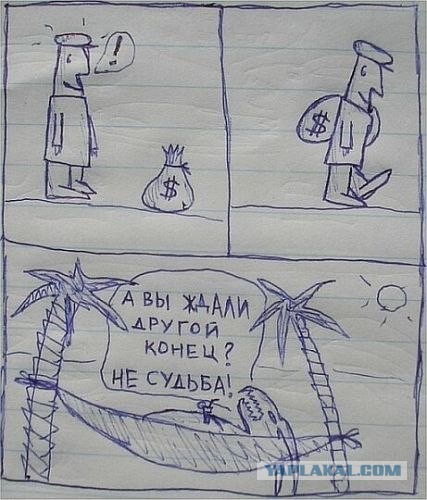 !
$
$
А ВЫ ЖДАЛИ
ДРУГОЙ
КОНЕЦ?
НЕ СУДЬБА!
YAPLAKAL.COM